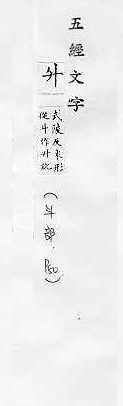 五經文字
升
式陵反象形
從斗作升訛
(斗部. P50)